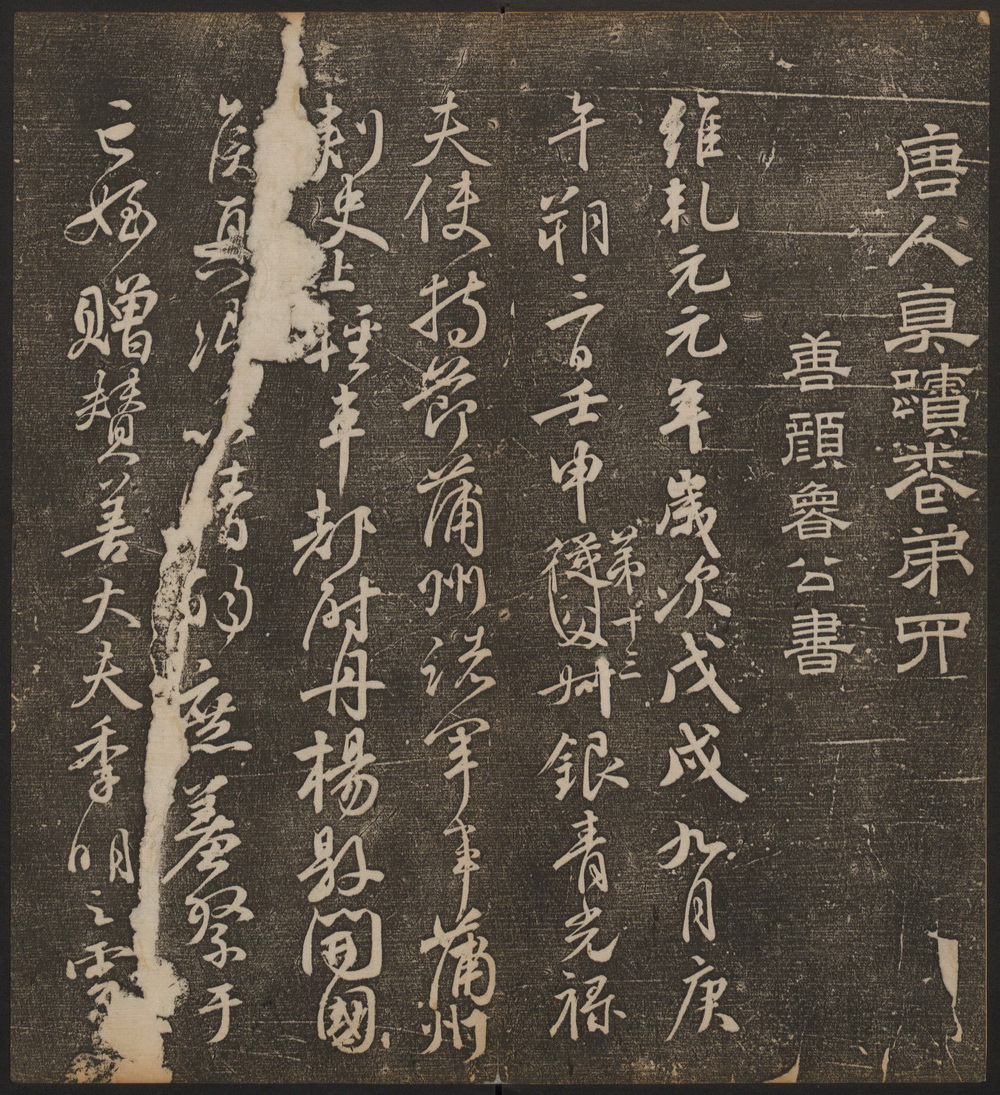 唐人真蹟卷弟四
善顏魯公書
維乹元元年歲次戊戌九月庚
午朔三日壬申第十三從父銀青光祿
夫使持節蒲州諸軍事蒲州
刺史上輕車都尉丹楊縣開國
侯真卿以清酌庶羞祭于
亡姪贈贊善大夫季明之靈